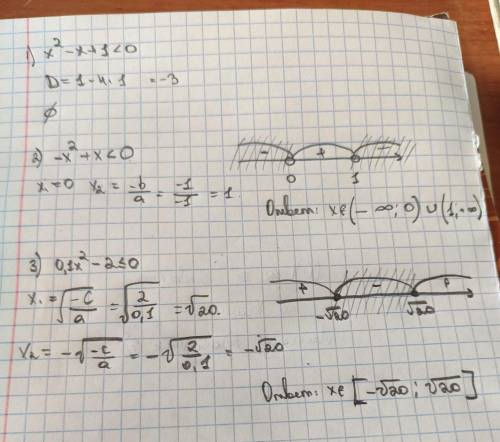 1) x² - x + 1 < 0
D = 1 - 4 · 1 = -3
∅
2) -x² + x < 0
x₁ = 0 x₂ = -b/a = -1/-1 = 1
- + -
0 1
Ответ: x ∈ (-∞; 0) ∪ (1; +∞)
3) 0,1x² - 2 ≤ 0
x₁ = √(-c/a) = √(2/0,1) = √20.
+ - +
-√20 √20
x₂ = -√(-c/a) = -√(2/0,1) = -√20
Ответ: x ∈ [-√20 ; √20]